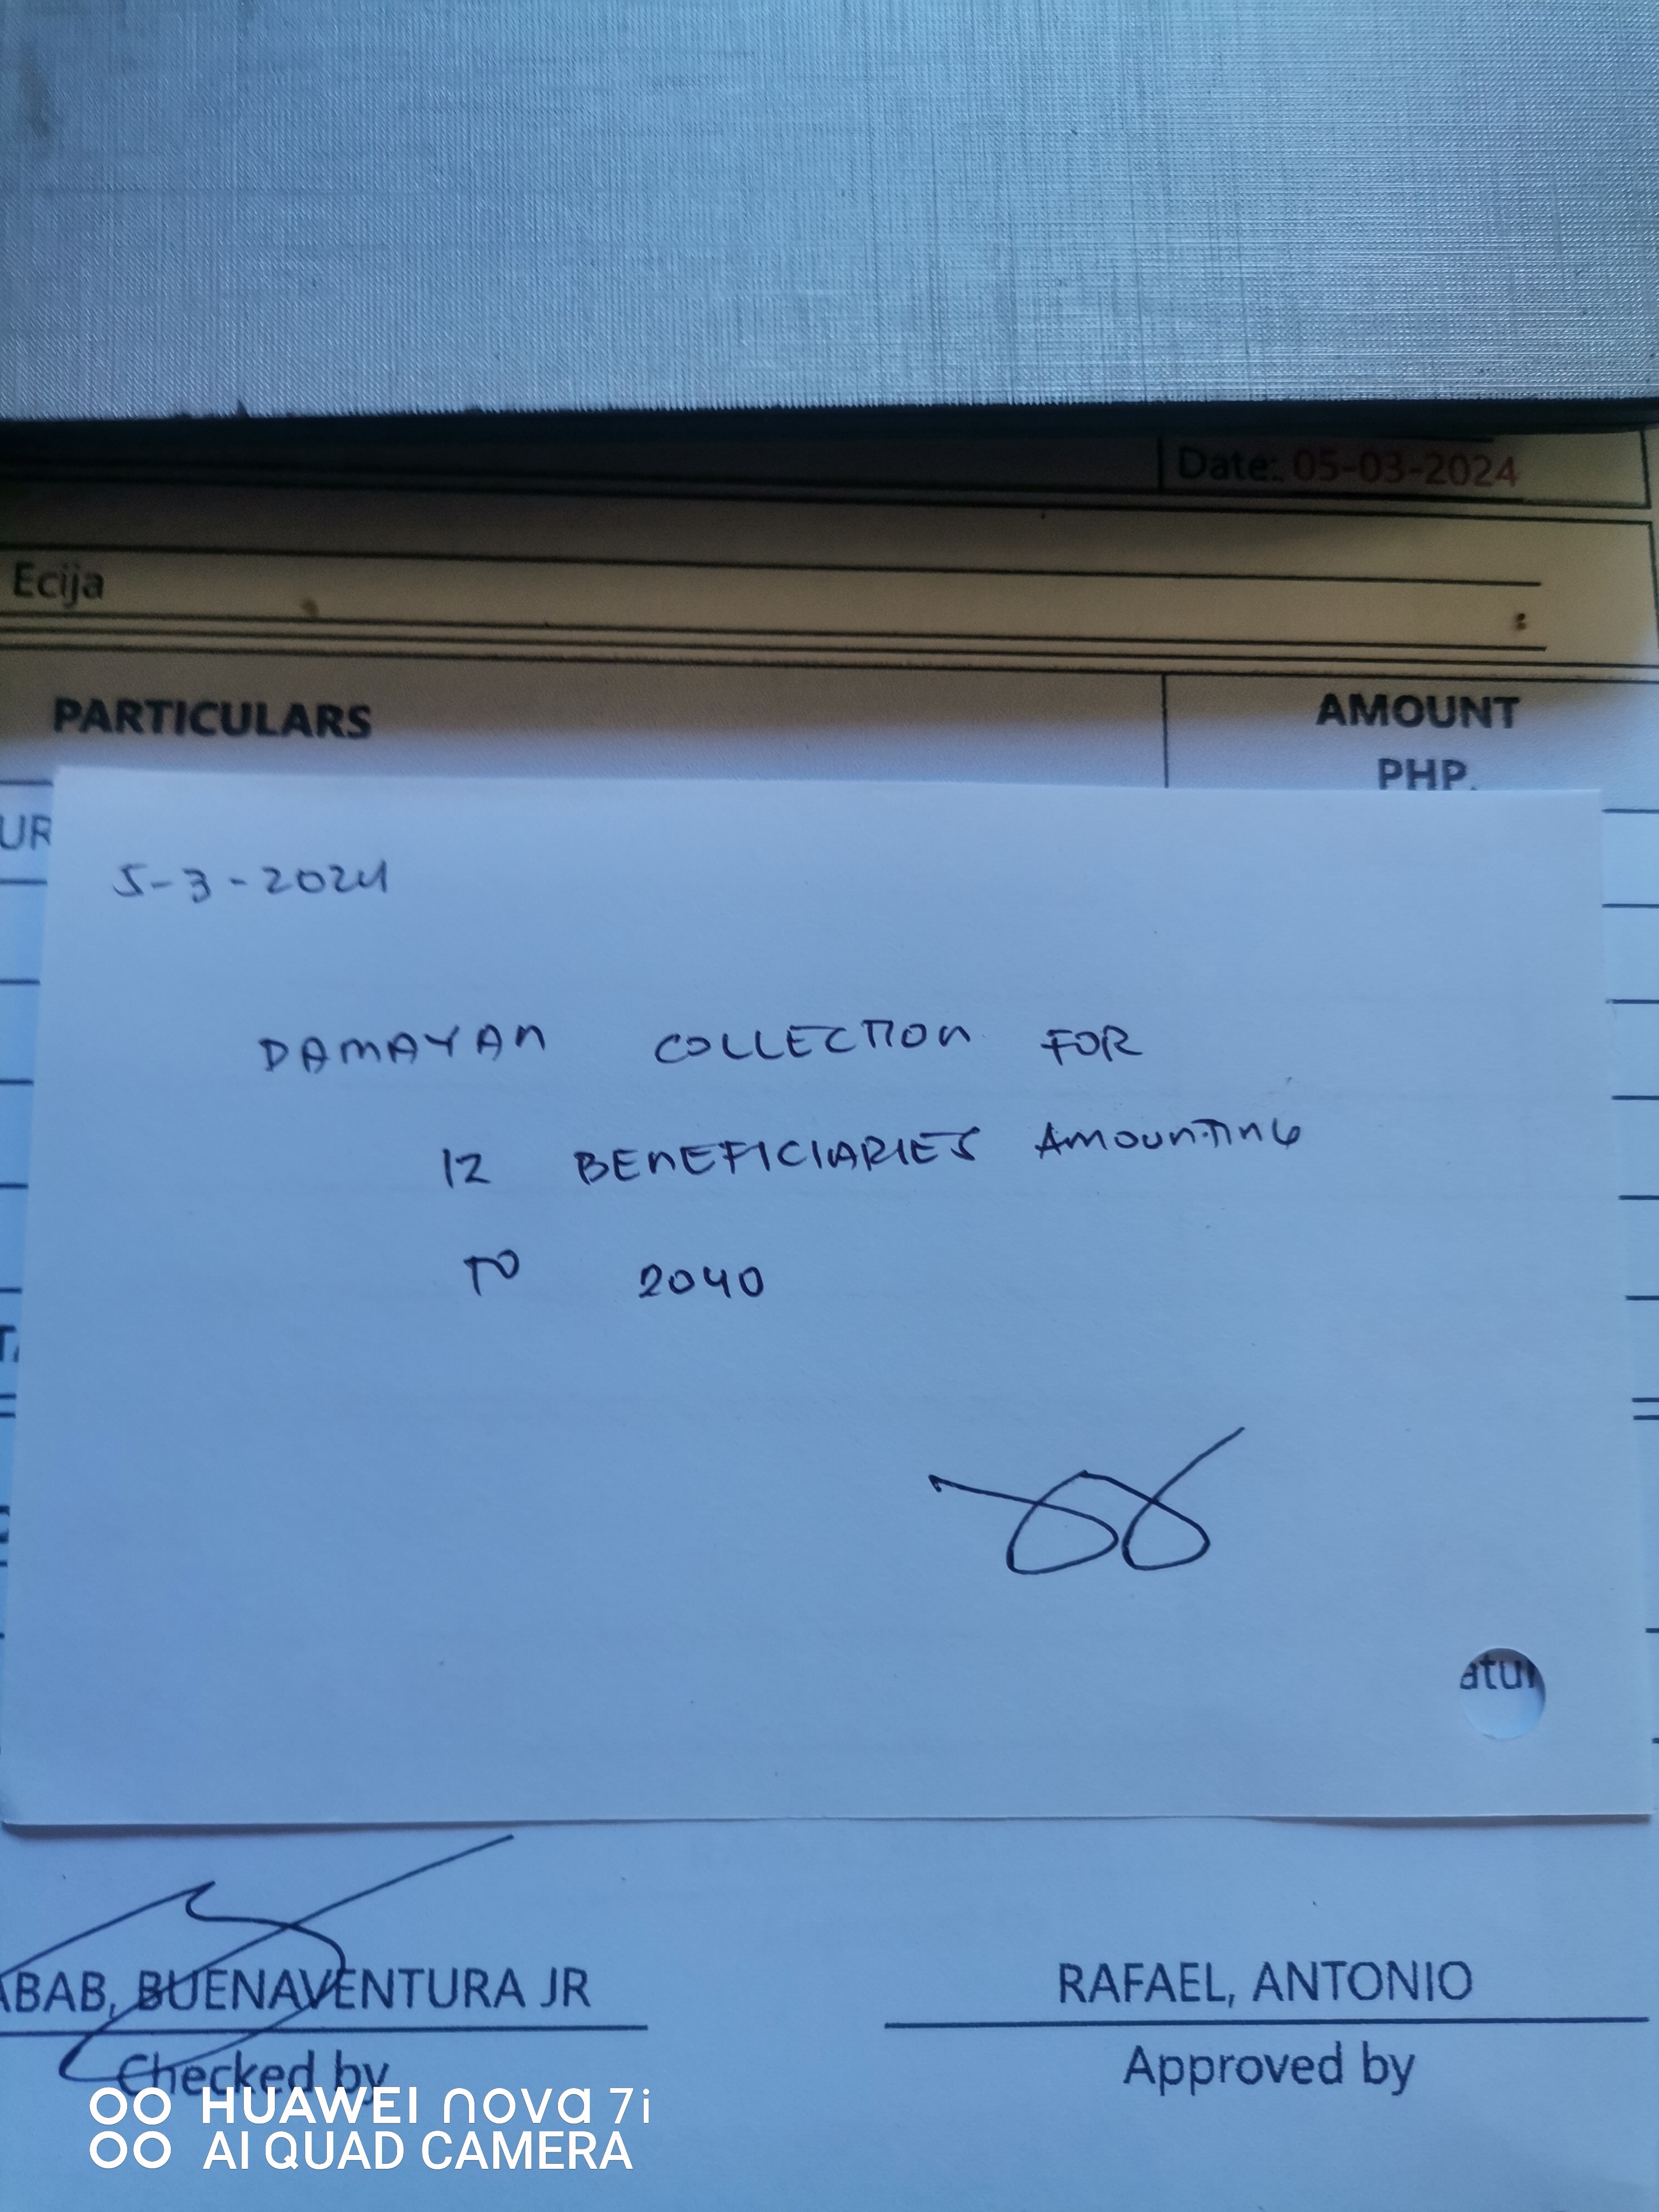 Date: 05-03-2024
Ecija
:
PARTICULARS
AMOUNT
PHP.
UR
5-3-2024
DAMAYAN COLLECTION FOR
12 BENEFICIARIES AMOUNTING
TO 2040
atur
ABAB, BUENAVENTURA JR
Checked by
RAFAEL, ANTONIO
Approved by
HUAWEI nova 7i
AI QUAD CAMERA